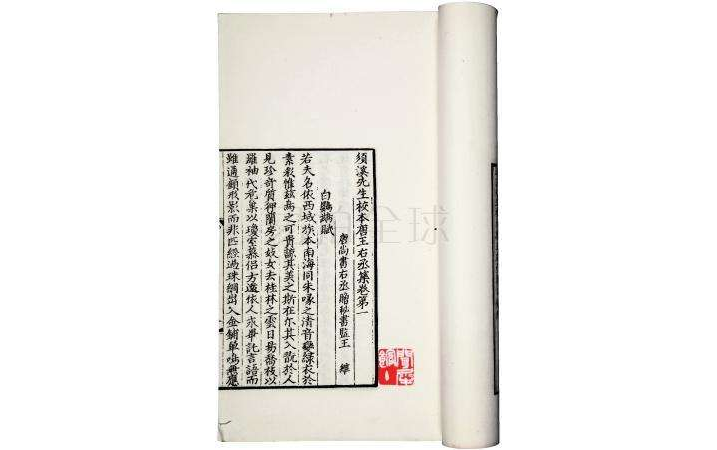 須溪先生校本唐王右丞集卷第一
唐尚書右丞贈秘書監王 維
白鸚鵡賦
若夫名依西域族本南海同朱喙之清音變綠衣於
素彩惟茲鳥之可貴諒其美之斯在尔其入翫於人
見珍奇質狎蘭房之妖女去桂林之雲日易喬枝以
羅袖代危巢以瓊室慕侶方遠依人永畢託言語而
雖通顧形影而非匹經過珠網出入金鋪單鳴無應
全球